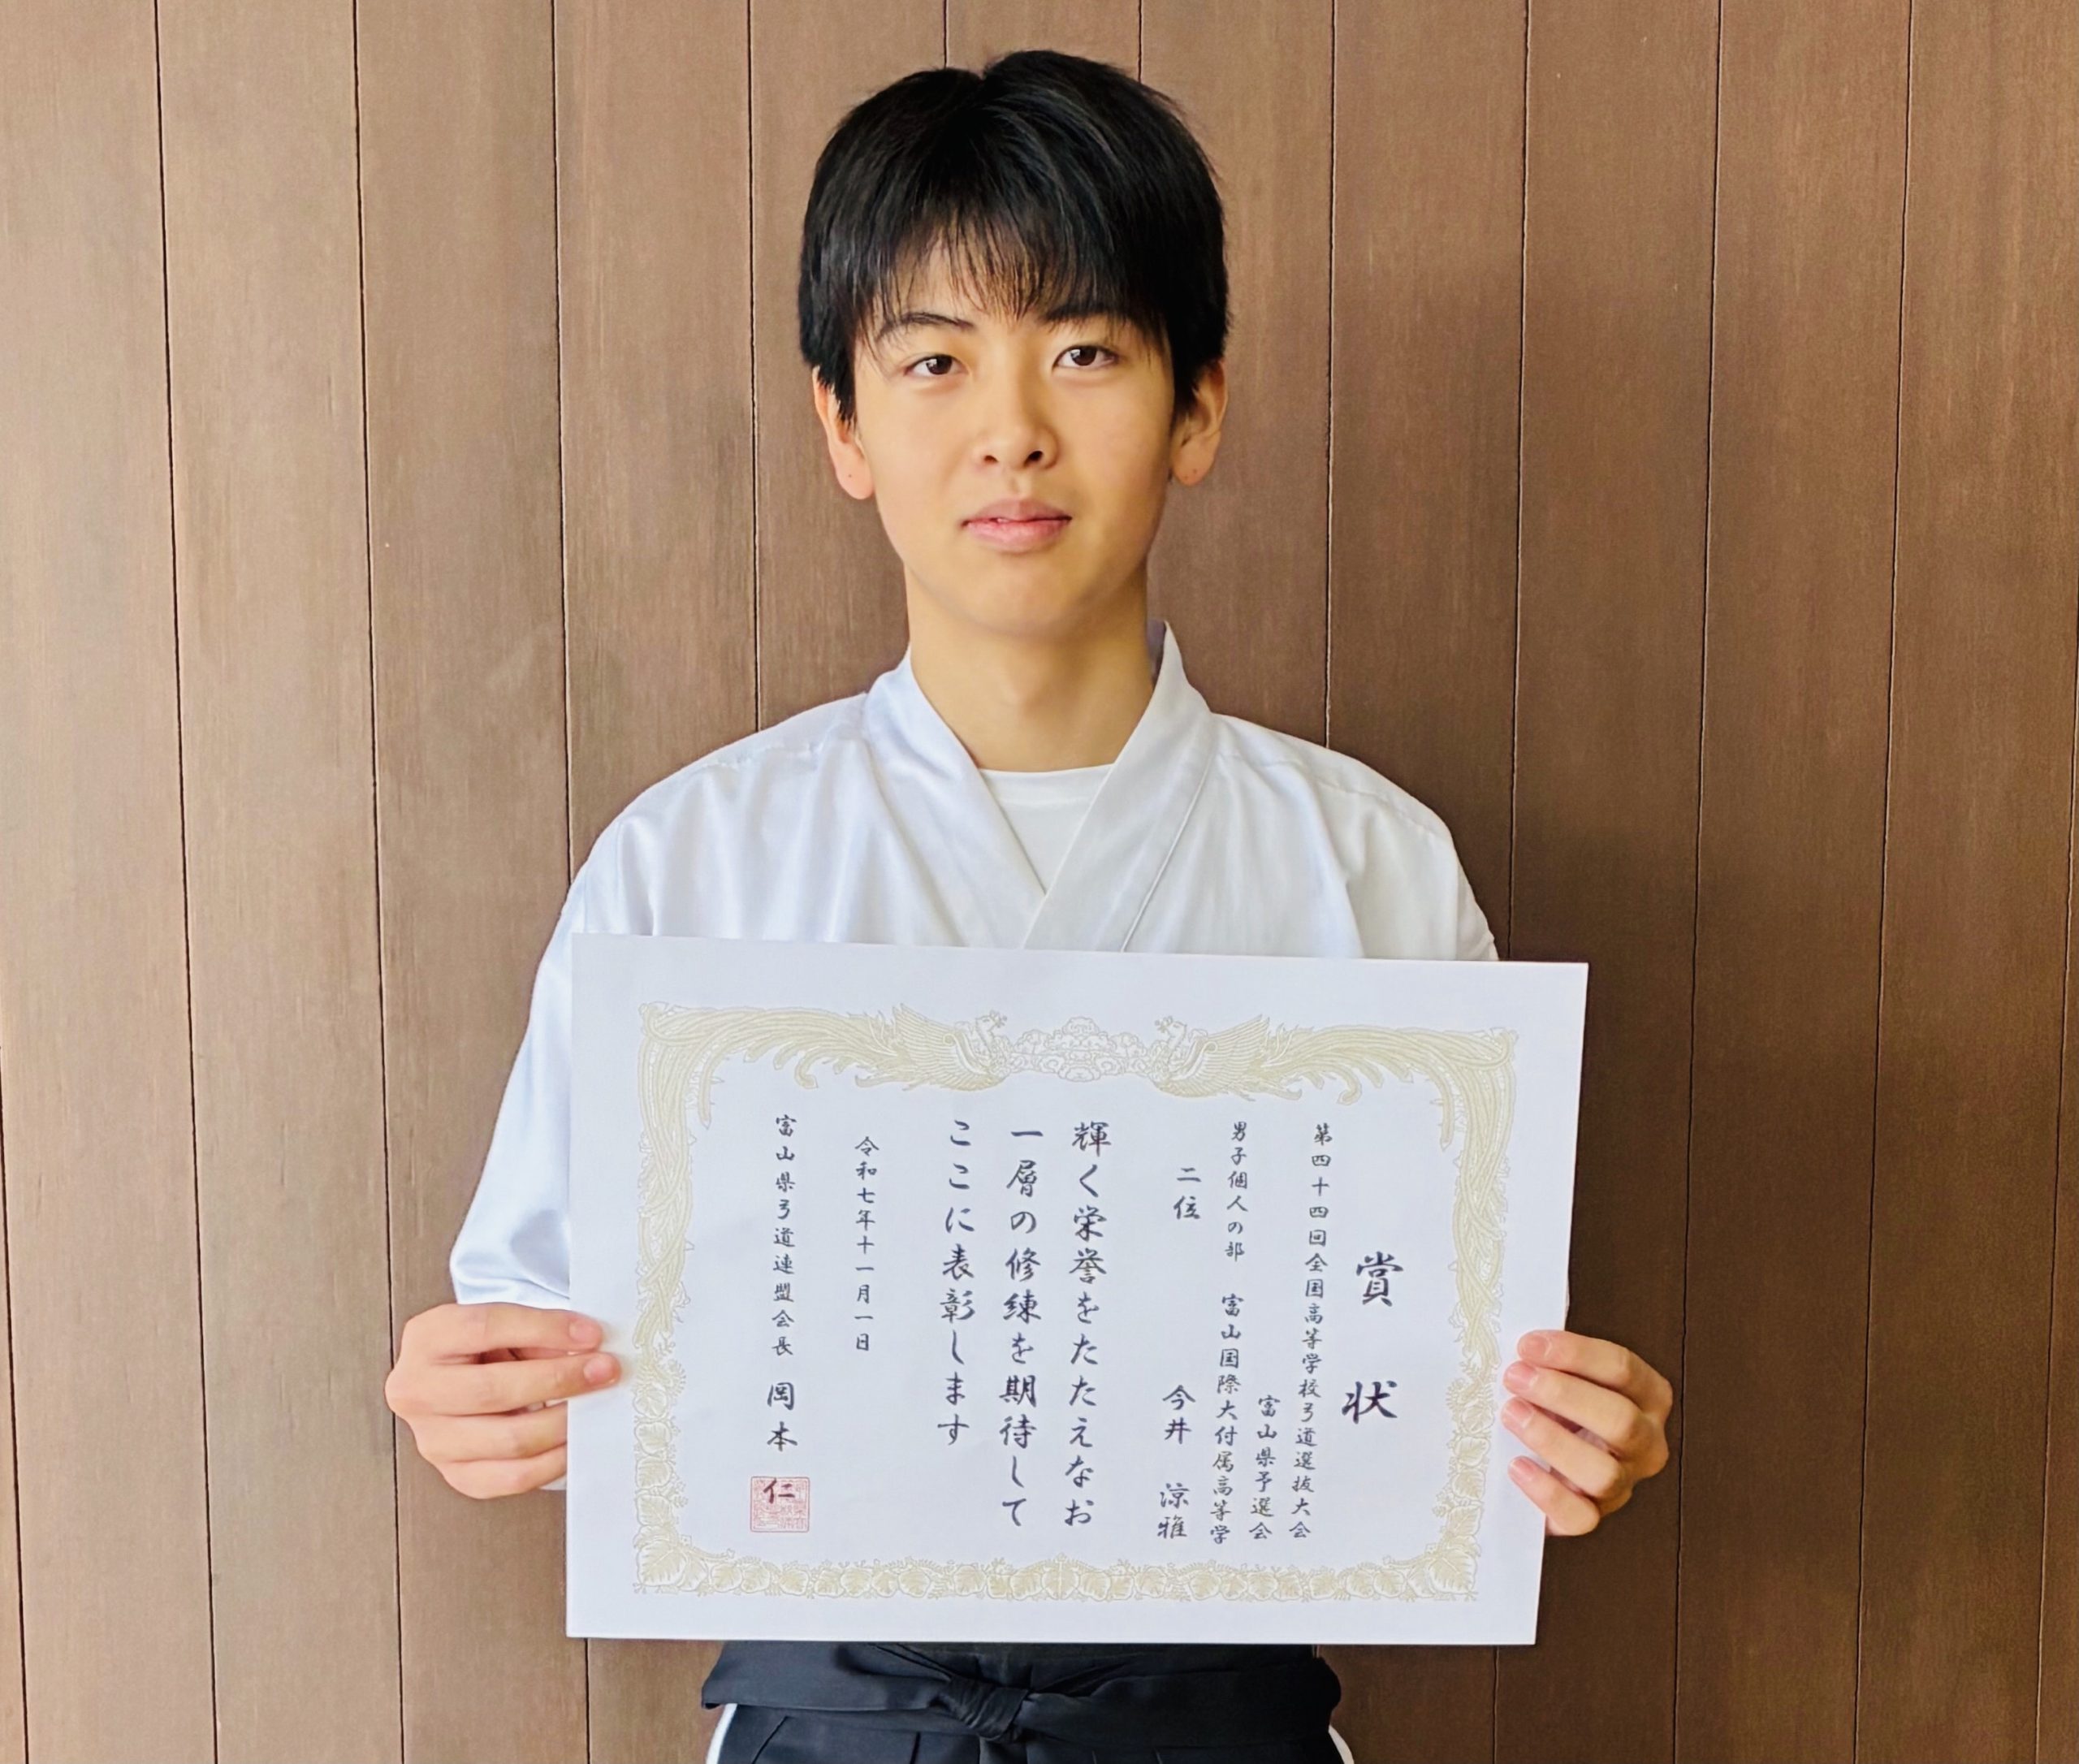 賞状
第四十四回全国高等学校弓道選抜大会
富山県予選会
男子個人の部 富山国際大付属高等学
二位 今井 涼雅
輝く栄誉をたたえなお
一層の修練を期待して
ここに表彰します
令和七年十一月一日
富山県弓道連盟会長 岡本 仁